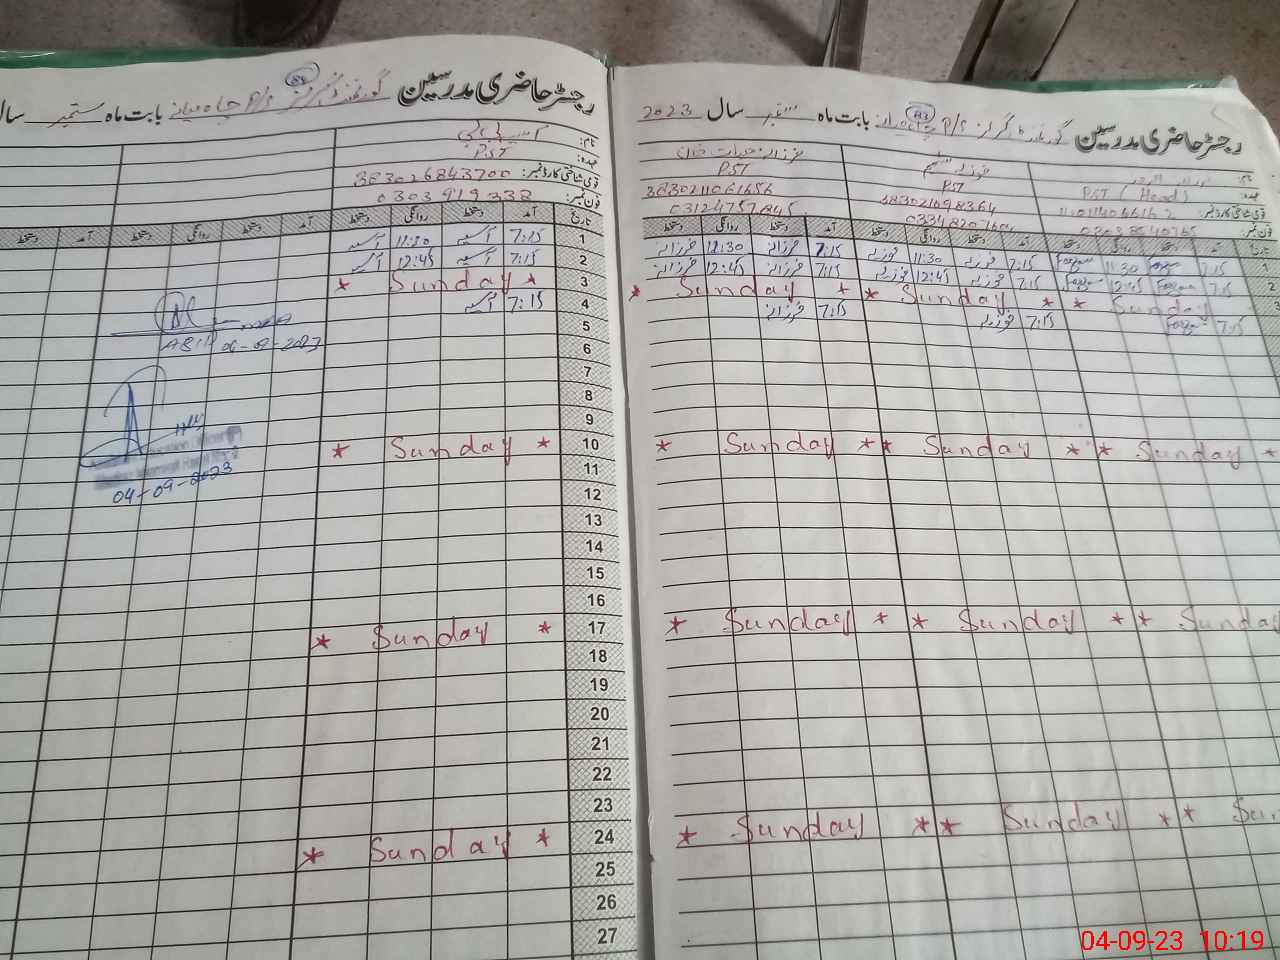 رجسٹر حاضری مدرسین گورنمنٹ گرلز P/S بابت ماہ ستمبر سال 2023
نام:
عہدہ: PST (Head)
قومی شناختی کارڈ نمبر:
فون نمبر:
فوزیہ نسیم
PST
فرزانہ حیات خان
PST
3830211061656
03124757845
تاریخ آمد دستخط روانگی دستخط آمد دستخط روانگی دستخط آمد دستخط روانگی دستخط
1 7:15 11:30 7:15 فوزیہ 11:30 فوزیہ 7:15 فرزانہ 11:30 فرزانہ
2 7:15 12:45 7:15 فوزیہ 12:45 فوزیہ 7:15 فرزانہ 12:45 فرزانہ
* Sunday * * Sunday * * Sunday *
7:15 7:15 فوزیہ 7:15 فرزانہ
* Sunday * * Sunday * * Sunday *
* Sunday * * Sunday * * Sunday
* Sunday * * Sunday * * Sun
رجسٹر حاضری مدرسین گورنمنٹ گرلز P/S چاہ میانہ بابت ماہ ستمبر سال
نام: آسیہ بی بی
عہدہ: PST
قومی شناختی کارڈ نمبر: 383026843700
فون نمبر: 0303 919338
تاریخ آمد دستخط روانگی دستخط آمد دستخط روانگی دستخط آمد دستخط
1 7:15 آسیہ 11:30 آسیہ
2 7:15 آسیہ 12:45 آسیہ
3 * Sunday *
4 7:15 آسیہ
5
6
7
8
9
10 * Sunday *
11
12
13
14
15
16
17 * Sunday *
18
19
20
21
22
23
24 * Sunday *
25
26
27
04-09-2023
04-09-23 10:19